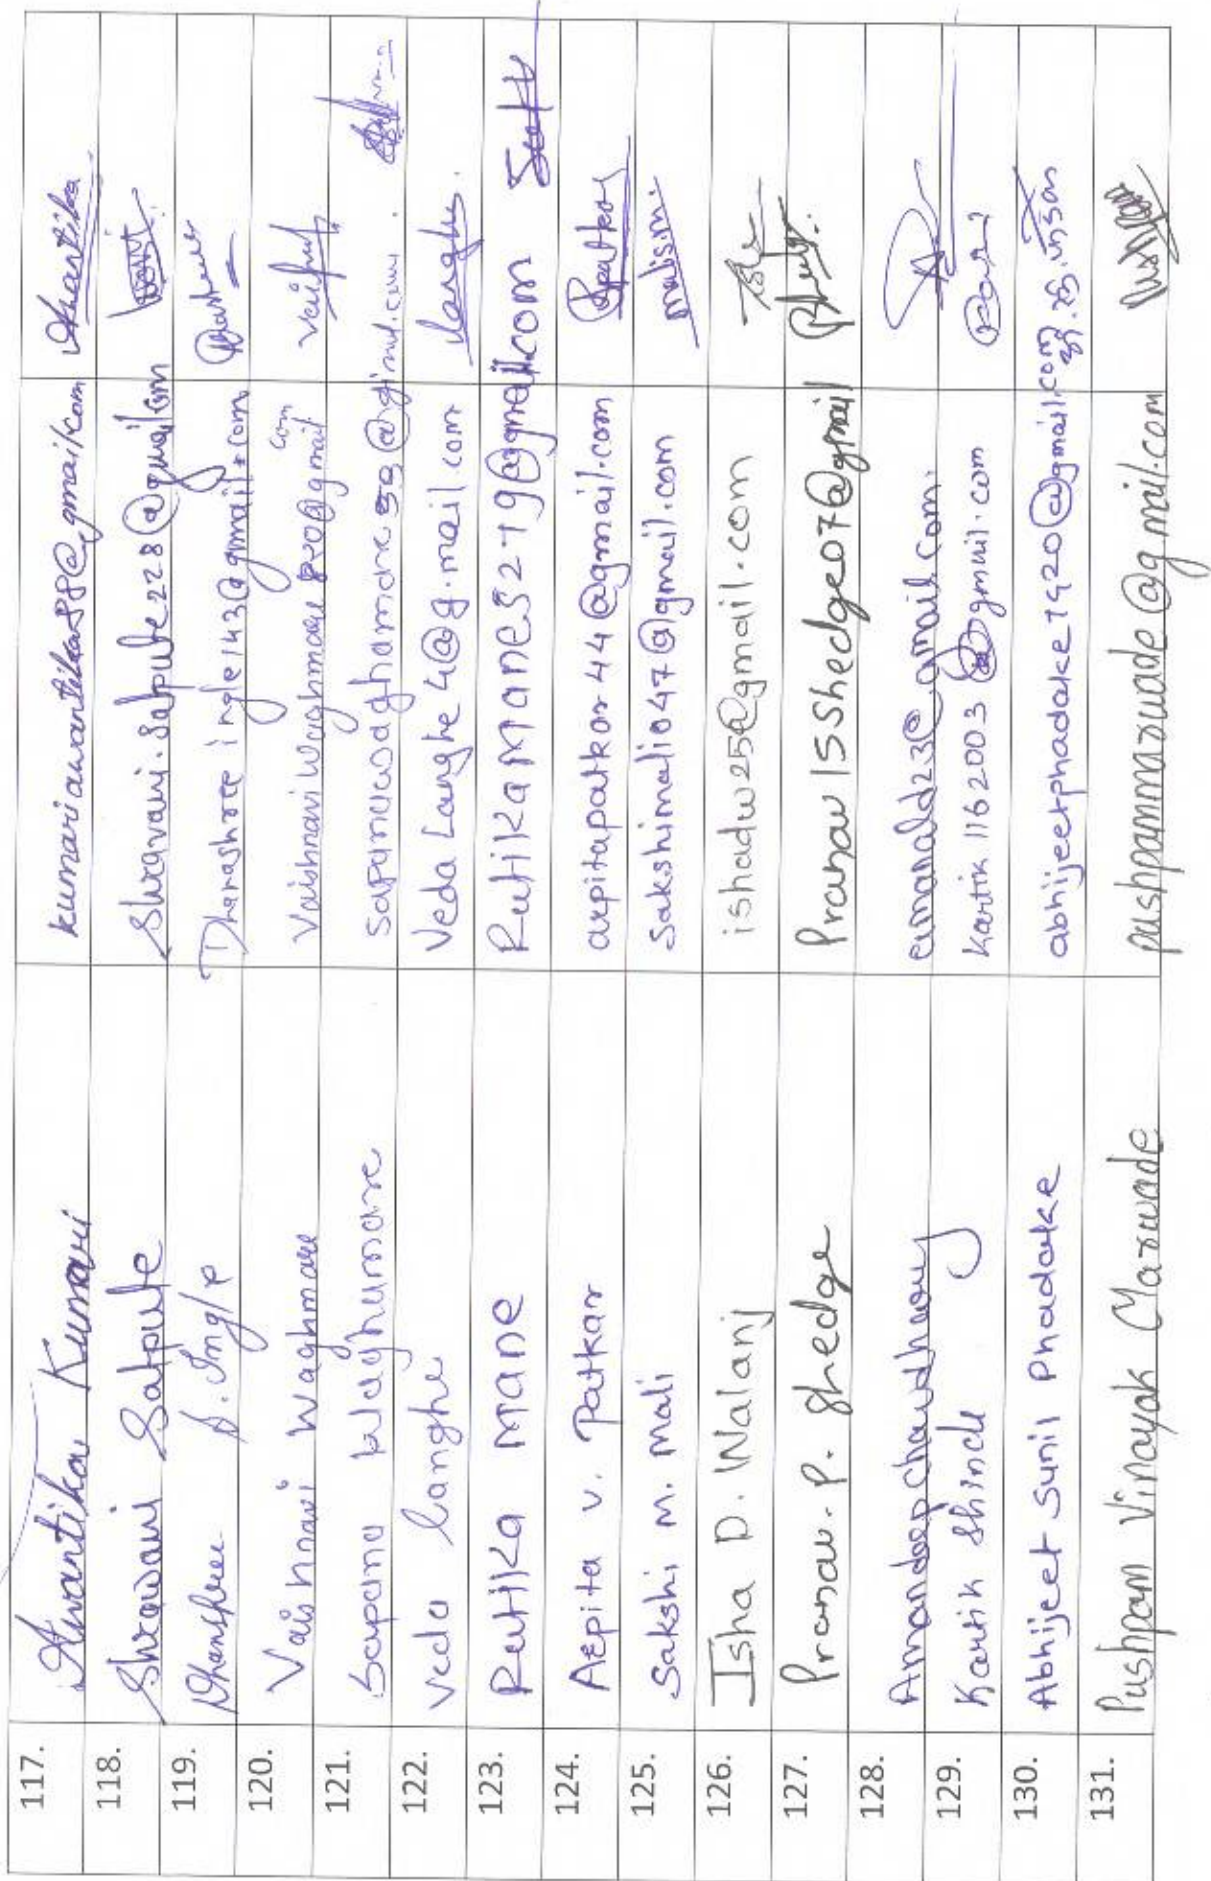 117. Awantika Kumari kumariawantika88@gmail.com Awantika
118. Shrawani Satpute Shravani.Satpute228@gmail.com
119. Dhanshree D. Ingle Dhanashree ingle143@gmail.com
120. Vaishnavi Waghmare VaishnaviWaghmare820@gmail.com
121. Sapana Waghamare sapanawaghamare39@gmail.com
122. Veda langhe Veda Langhe4@g.mail.com Langhe
123. Rutika Mane RutikaMane5279@gmail.com
124. Arpita V. Patkar arpitapatkar44@gmail.com APatkar
125. Sakshi M. Mali Sakshimali047@gmail.com malism
126. Isha D. Walanj ishadw25@gmail.com
127. Pranav. P. Shedge Pranav15Shedge07@gmail
128. Amandeep chaudhary amandd23@gmail.com.
129. Kartik Shinde Kartik 1162003@gmail.com
130. Abhijeet Sunil Phadake abhijeetphadake7920@gmail.com
131. Pushpam Vinayak Marwade pushpammarwade@gmil.com